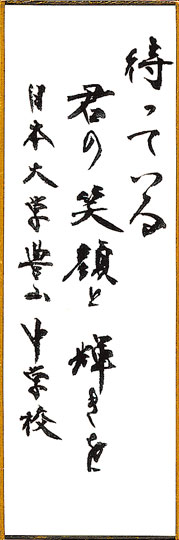 待っている
君の笑顔と輝きを
日本大学豊山中学校